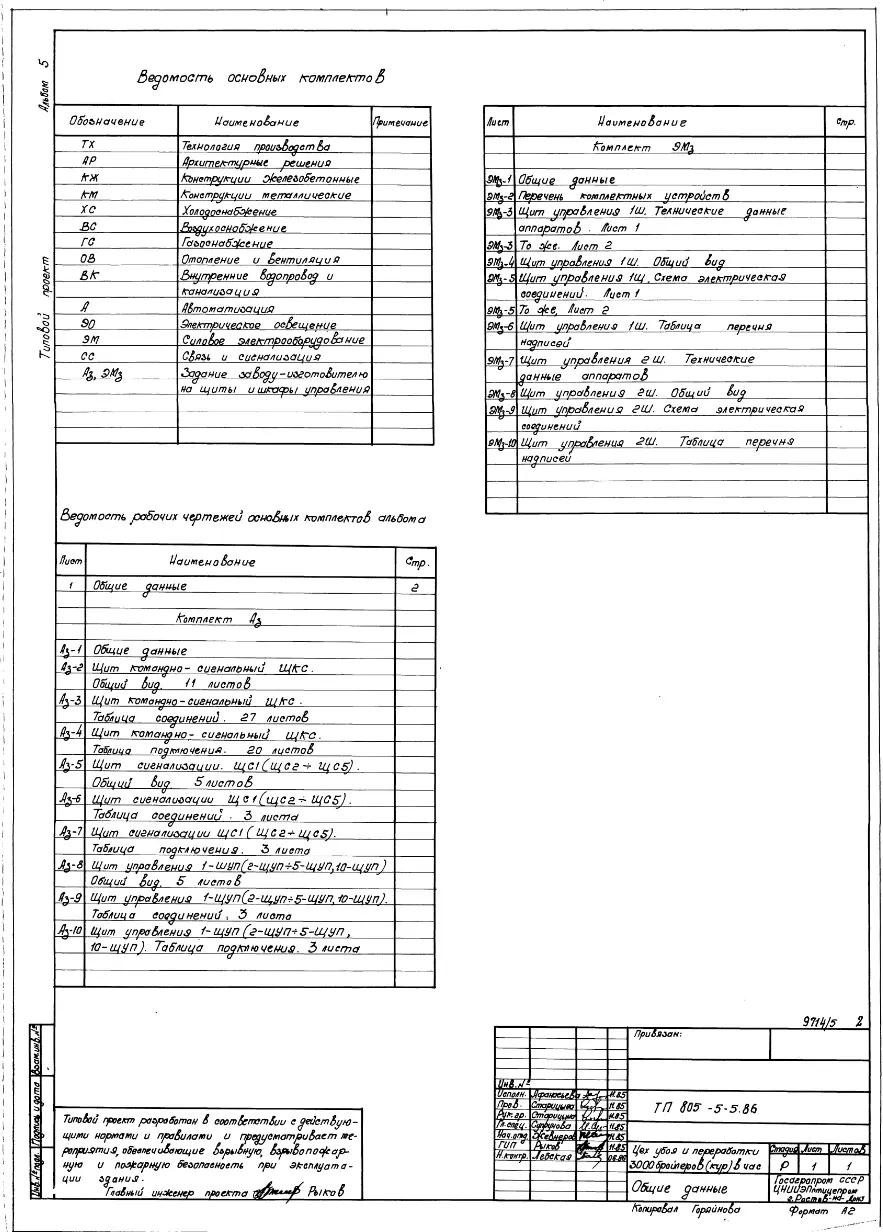 Альбом 5
Типовой проект
Ведомость основных комплектов
Обозначение Наименование Примечание
ТХ Технология производства
АР Архитектурные решения
КЖ Конструкции железобетонные
КМ Конструкции металлические
ХС Холодоснабжение
ВС Воздухоснабжение
ГС Газоснабжение
ОВ Отопление и вентиляция
ВК Внутренние водопровод и
канализация
А Автоматизация
ЭО Электрическое освещение
ЭМ Силовое электрооборудование
СС Связь и сигнализация
Аз, ЭМз Задание заводу-изготовителю
на щиты и шкафы управления
Ведомость рабочих чертежей основных комплектов альбома
Лист Наименование Стр.
1 Общие данные 2
Комплект Аз
Аз-1 Общие данные
Аз-2 Щит командно-сигнальный ЩКС.
Общий вид. 11 листов
Аз-3 Щит командно-сигнальный ЩКС.
Таблица соединений. 27 листов
Аз-4 Щит командно-сигнальный ЩКС.
Таблица подключения. 20 листов
Аз-5 Щит сигнализации. ЩС1(ЩС2÷ЩС5).
Общий вид 5 листов
Аз-6 Щит сигнализации ЩС1(ЩС2÷ЩС5).
Таблица соединений. 3 листа
Аз-7 Щит сигнализации ЩС1(ЩС2÷ЩС5).
Таблица подключения. 3 листа
Аз-8 Щит управления 1-ЩУП(2-ЩУП÷5-ЩУП,10-ЩУП)
Общий вид. 5 листов
Аз-9 Щит управления 1-ЩУП(2-ЩУП÷5-ЩУП,10-ЩУП).
Таблица соединений, 3 листа
Аз-10 Щит управления 1-ЩУП(2-ЩУП÷5-ЩУП,
10-ЩУП). Таблица подключения. 3 листа
Лист Наименование Стр.
Комплект ЭМз
ЭМз-1 Общие данные
ЭМз-2 Перечень комплектных устройств
ЭМз-3 Щит управления 1Ш. Технические данные
аппаратов. Лист 1
ЭМз-3 То же. Лист 2
ЭМз-4 Щит управления 1Ш. Общий вид
ЭМз-5 Щит управления 1Щ, Схема электрическая
соединений. Лист 1
ЭМз-5 То же, Лист 2
ЭМз-6 Щит управления 1Ш. Таблица перечня
надписей
ЭМз-7 Щит управления 2Ш. Технические
данные аппаратов
ЭМз-8 Щит управления 2Ш. Общий вид
ЭМз-9 Щит управления 2Ш. Схема электрическая
соединений
ЭМз-10 Щит управления 2Ш. Таблица перечня
надписей
Инв.№подл. Подпись и дата Взам.инв.№
Типовой проект разработан в соответствии с действую-
щими нормами и правилами и предусматривает ме-
роприятия, обеспечивающие взрывную, взрывопожар-
ную и пожарную безопасность при эксплуата-
ции здания.
Главный инженер проекта Рыков
9714/5 2
Привязан:
Инв.№
Исполн. Афанасьева 11.85
Пров. Старицына 11.85
Рук.гр. Старицына 11.85
Гл.спец. 11.85
Нач.отд. 11.85
ГИП Рыков 11.85
Н.контр. Лебская 06.86
ТП 805-5-5.86
Цех убоя и переработки
3000 бройлеров(кур) в час
Стадия Лист Листов
Р 1 1
Общие данные
Госагропром СССР
ЦНИИЭПптицепром
г.Ростов-на-Дону
Копировал Горяйнова Формат А2